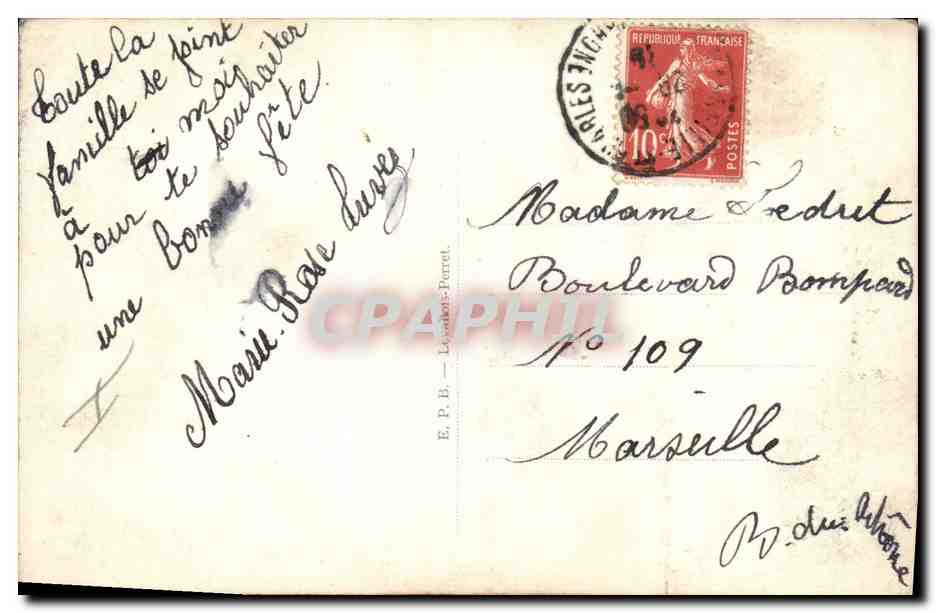 Toute la
famille se joint
à toi moi
pour te souhaiter
une bonne fête.
Marie-Rose
E. P. B. — Levallois-Perret.
RÉPUBLIQUE FRANÇAISE
10c
POSTES
Madame
Boulevard Bompard
N° 109
Marseille
B.-du-Rhône
CPAPHIL